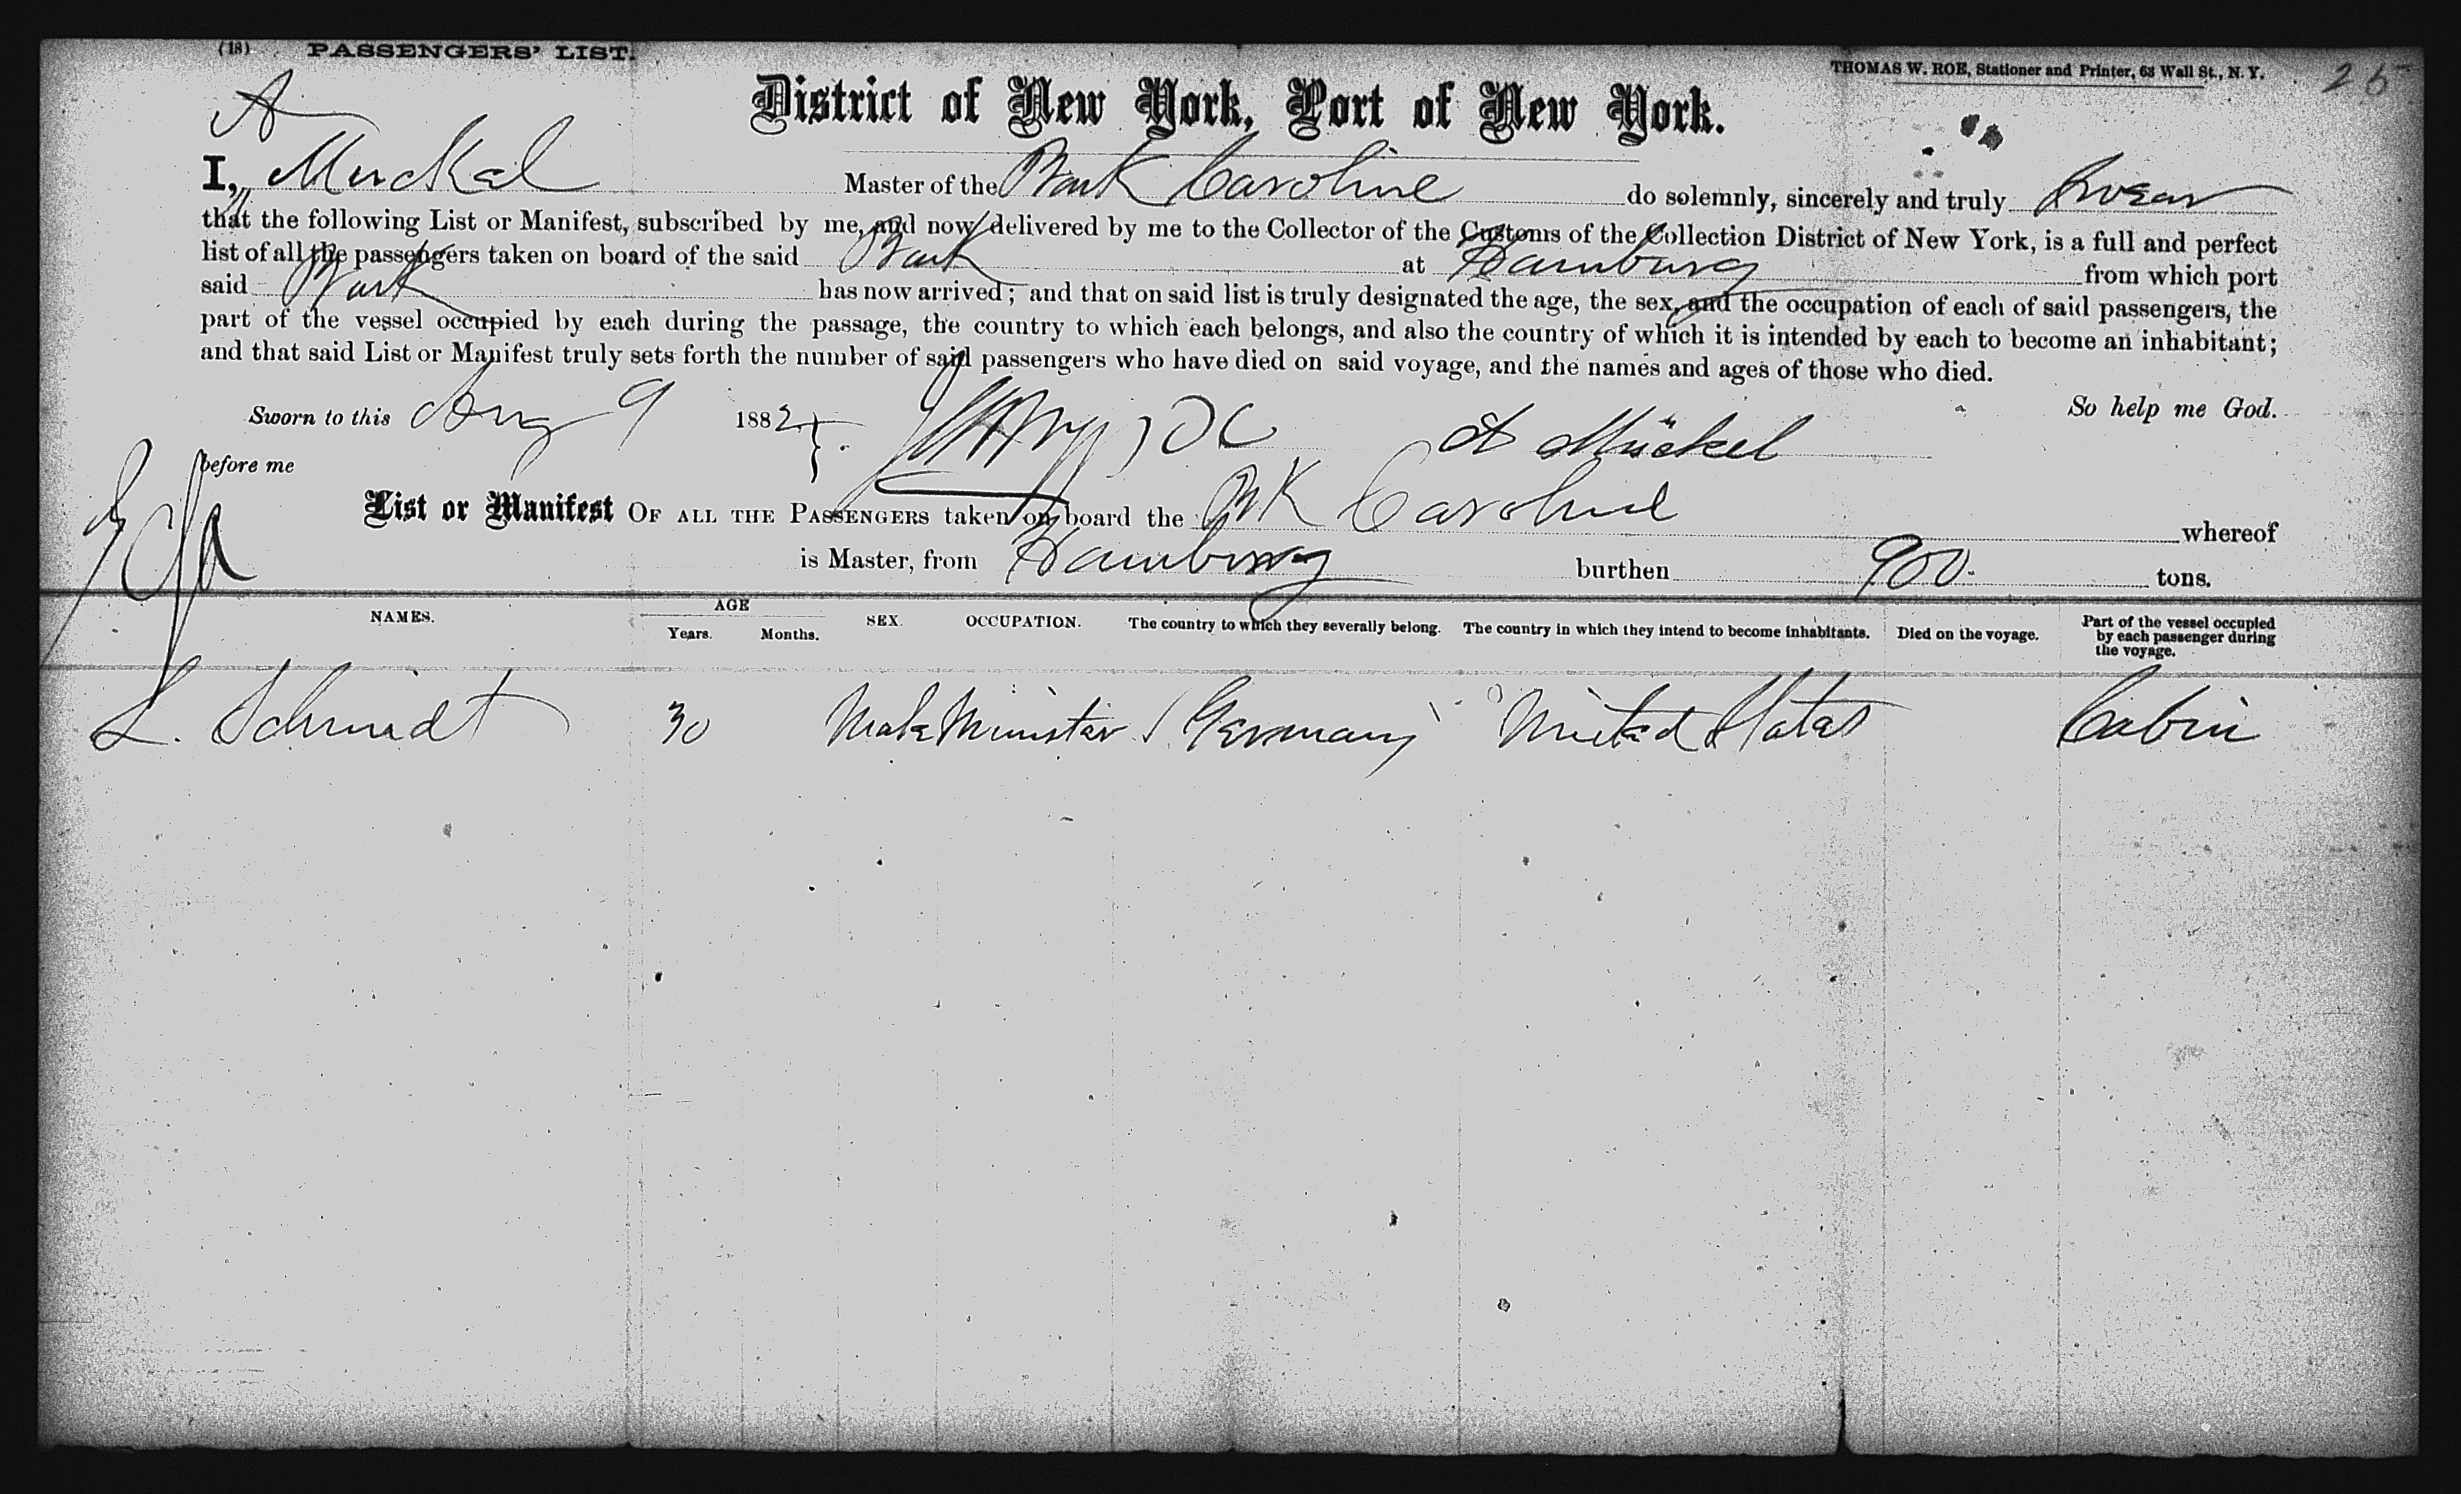 (18) PASSENGERS' LIST.
THOMAS W. ROE, Stationer and Printer, 63 Wall St., N. Y.
25
District of New York, Port of New York.
A
I, Muckal Master of the Bark Caroline do solemnly, sincerely and truly Swear
that the following List or Manifest, subscribed by me, and now delivered by me to the Collector of the Customs of the Collection District of New York, is a full and perfect
list of all the passengers taken on board of the said Bark at Hamburg from which port
said Bark has now arrived; and that on said list is truly designated the age, the sex, and the occupation of each of said passengers, the
part of the vessel occupied by each during the passage, the country to which each belongs, and also the country of which it is intended by each to become an inhabitant;
and that said List or Manifest truly sets forth the number of said passengers who have died on said voyage, and the names and ages of those who died.
Sworn to this Aug 9 1882 So help me God.
A Mückel
before me
List or Manifest OF ALL THE PASSENGERS taken on board the Bk Caroline whereof
is Master, from Hamburg burthen 900 tons.
NAMES. AGE Years. Months. SEX. OCCUPATION. The country to which they severally belong. The country in which they intend to become inhabitants. Died on the voyage. Part of the vessel occupied by each passenger during the voyage.
L. Schmidt 30 Male Minister Germany United States Cabin